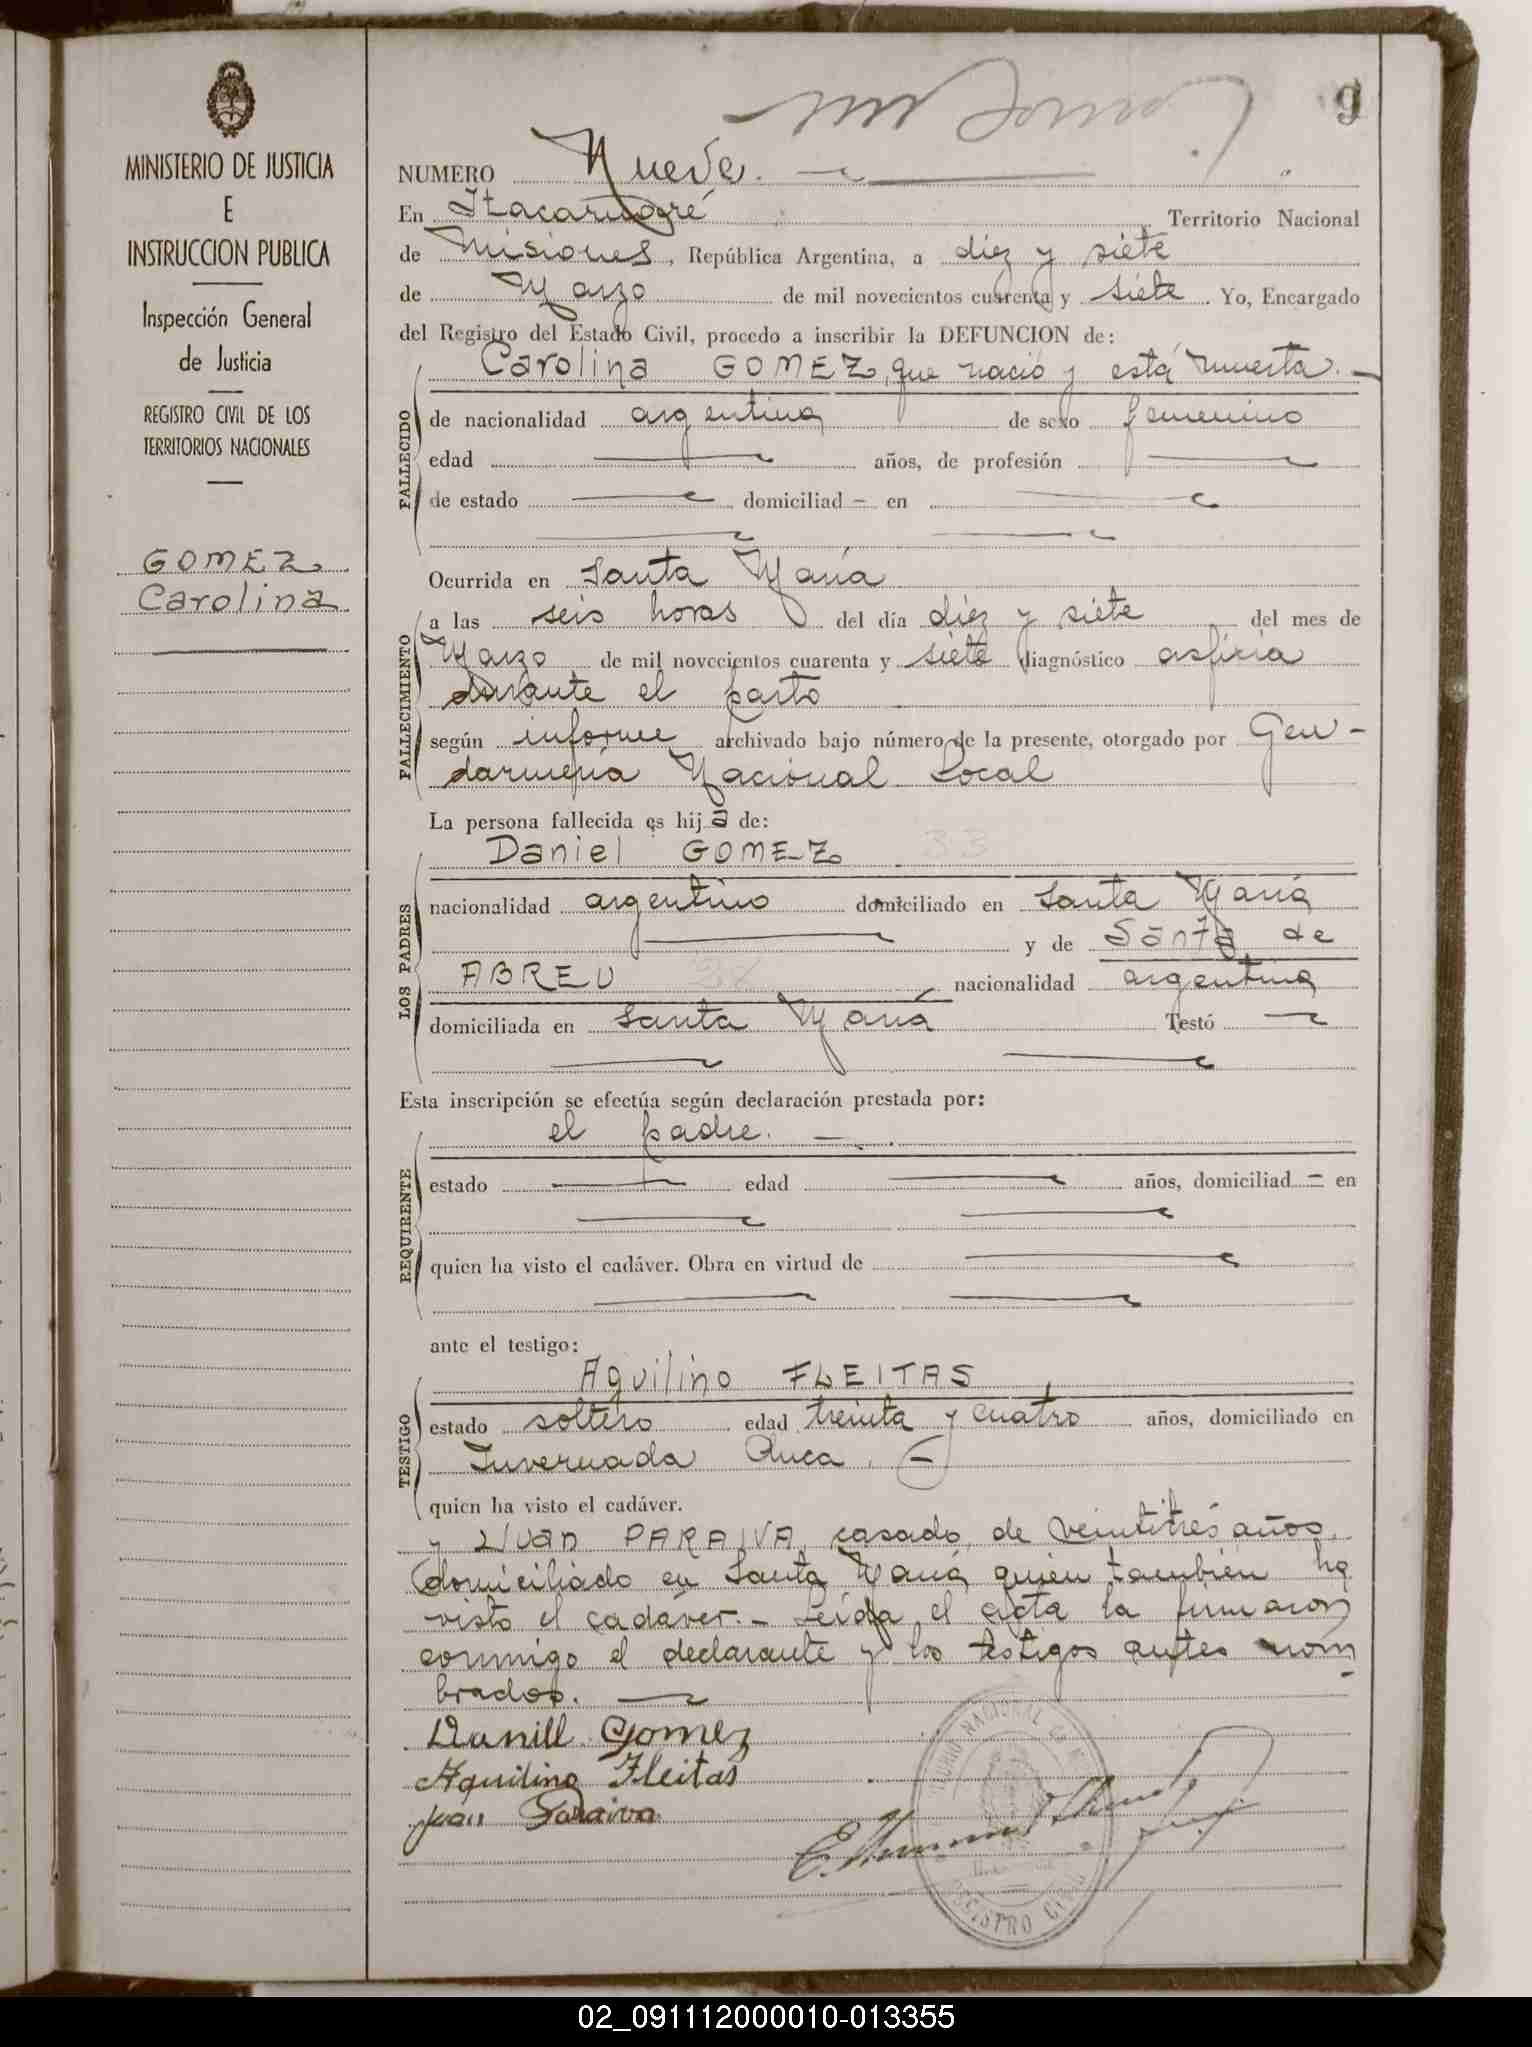 9
MINISTERIO DE JUSTICIA
E
INSTRUCCION PUBLICA
Inspección General
de Justicia
REGISTRO CIVIL DE LOS
TERRITORIOS NACIONALES
GOMEZ
Carolina
NUMERO Nueve.
En Itacaruaré Territorio Nacional
de Misiones, República Argentina, a diez y siete
de Marzo de mil novecientos cuarenta y siete. Yo, Encargado
del Registro del Estado Civil, procedo a inscribir la DEFUNCION de:
FALLECIDO
Carolina GOMEZ, que nació y está muerta. —
de nacionalidad argentina de sexo femenino
edad — años, de profesión —
de estado — domiciliad — en —
Ocurrida en Santa María
FALLECIMIENTO
a las seis horas del día diez y siete del mes de
Marzo de mil novecientos cuarenta y siete diagnóstico asfixia
durante el parto
según informe archivado bajo número de la presente, otorgado por Gen-
darmería Nacional Local
La persona fallecida es hija de:
LOS PADRES
Daniel GOMEZ 33
nacionalidad argentino domiciliado en Santa María
— y de Santa de
ABREU nacionalidad argentina
domiciliada en Santa María Testó —
Esta inscripción se efectúa según declaración prestada por:
REQUIRENTE
el padre. —
estado — edad — años, domiciliad — en
quien ha visto el cadáver. Obra en virtud de —
ante el testigo:
TESTIGO
Aquilino FLEITAS
estado soltero edad treinta y cuatro años, domiciliado en
Invernada Chica. —
quien ha visto el cadáver.
y Juan PARAIVA, casado, de veintitrés años,
domiciliado en Santa María quien también ha
visto el cadáver. — Leída el acta la firmaron
conmigo el declarante y los testigos antes nom
brados. —
Danill Gomez
Aquilino Fleitas
Juan Paraiva
REGISTRO CIVIL
02_091112000010-013355